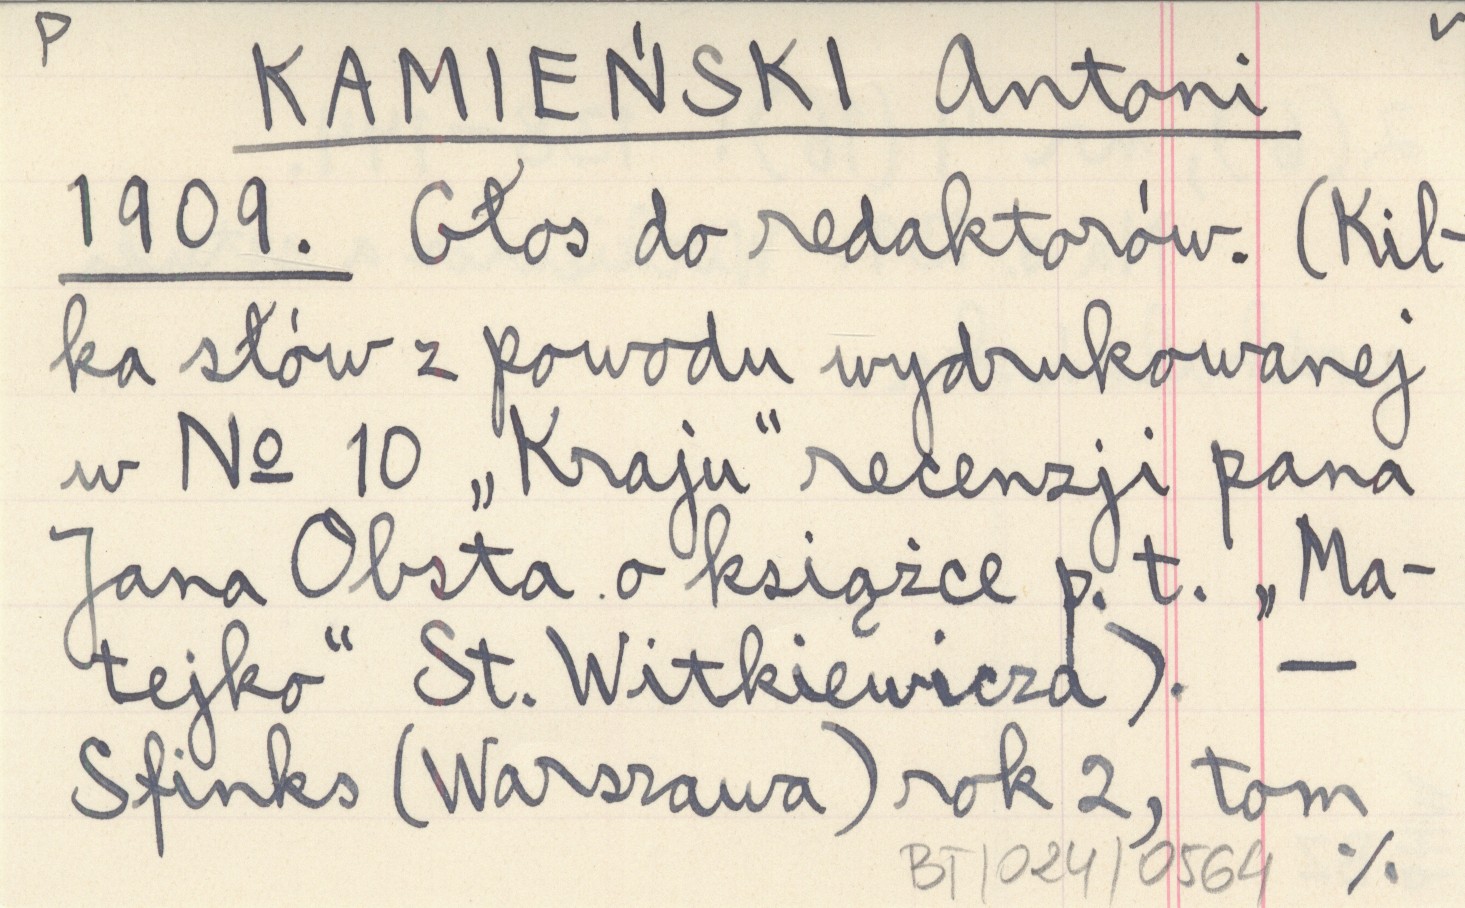 P
KAMIEŃSKI Antoni
1909. Głos do redaktorów. (Kil-
ka słów z powodu wydrukowanej
w № 10 „Kraju“ recenzji pana
Jana Obsta o książce p. t. „Ma-
tejko“ St. Witkiewicza). —
Sfinks (Warszawa) rok 2, tom
BT/024/0564 ·/.